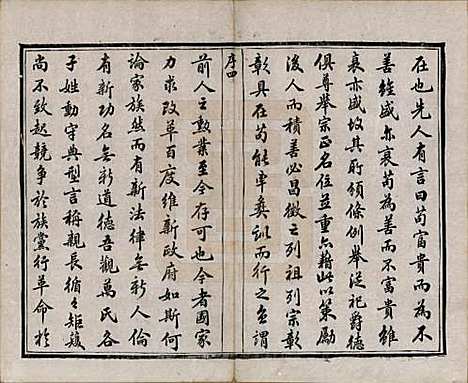 在也先人有言曰苟富貴而為不
善雖盛亦衰苟為善而不富貴雖
衰亦盛故其所頒條例舉從祀爵德
俱尊舉宗正名位並重六藉此以策勵
後人而積善必昌徵之列祖列宗彰
彰具在苟能率彝訓而行之無謂
序四
前人之勳業至今存可也今者國家
力求改革百度維新政府如斯何
論家族然而有新法律無新人倫
有新功名無新道德吾觀萬氏各
子姓動守典型言稱親長循々矩矱
尚不致起競爭於族黨行革命於